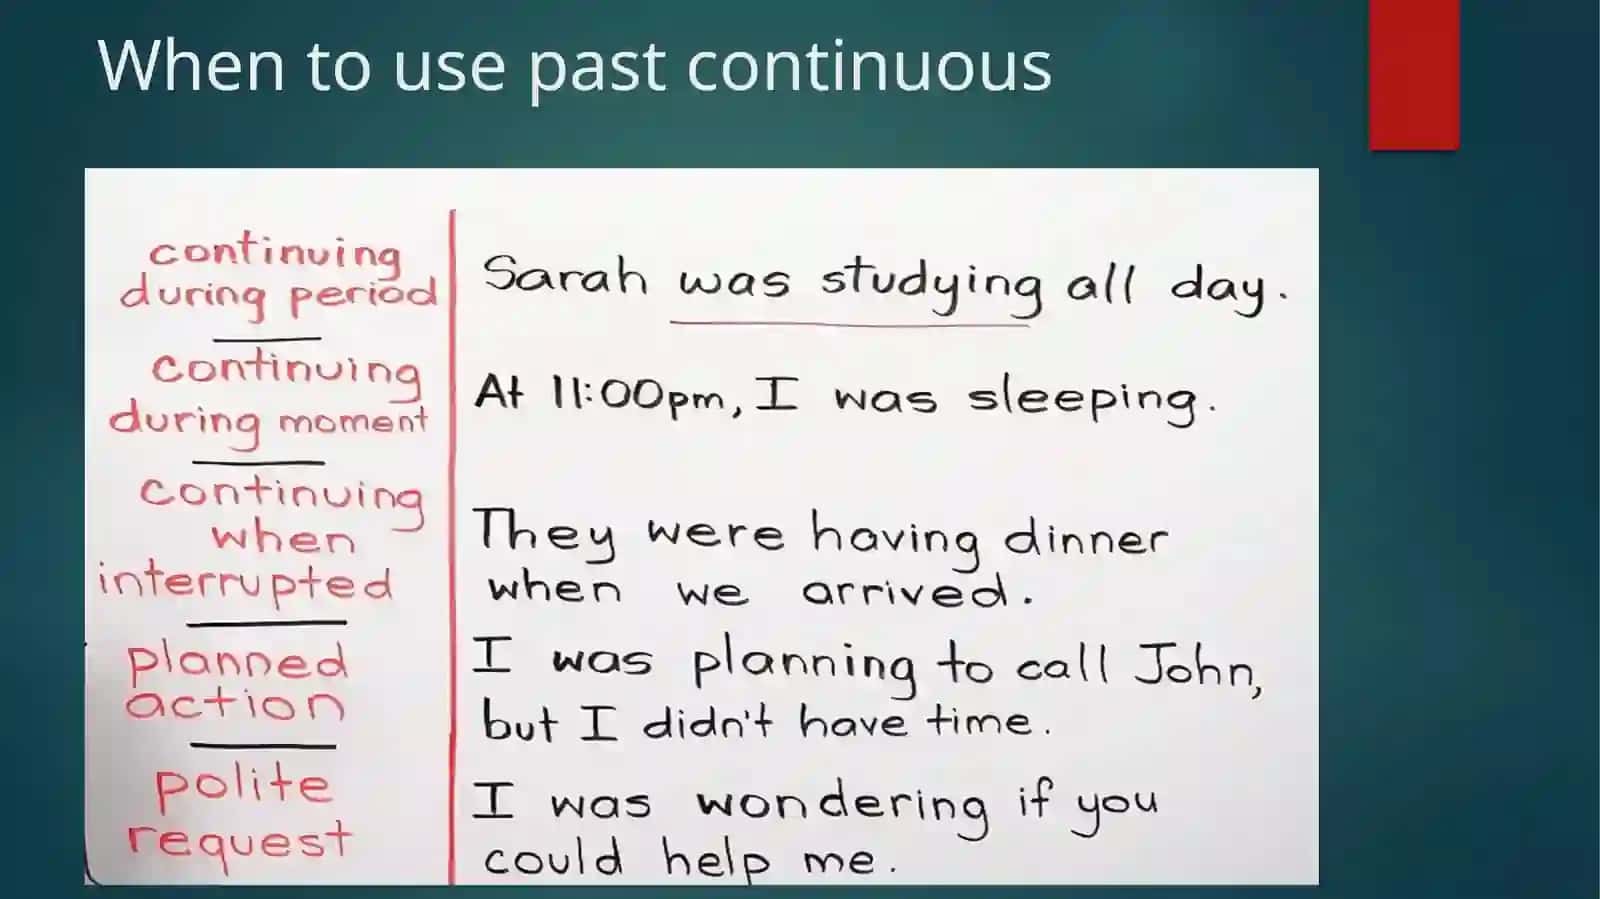 When to use past continuous
continuing
during period
Sarah was studying all day.
continuing
during moment
At 11:00pm, I was sleeping.
continuing
when
interrupted
They were having dinner
when we arrived.
planned
action
I was planning to call John,
but I didn't have time.
polite
request
I was wondering if you
could help me.